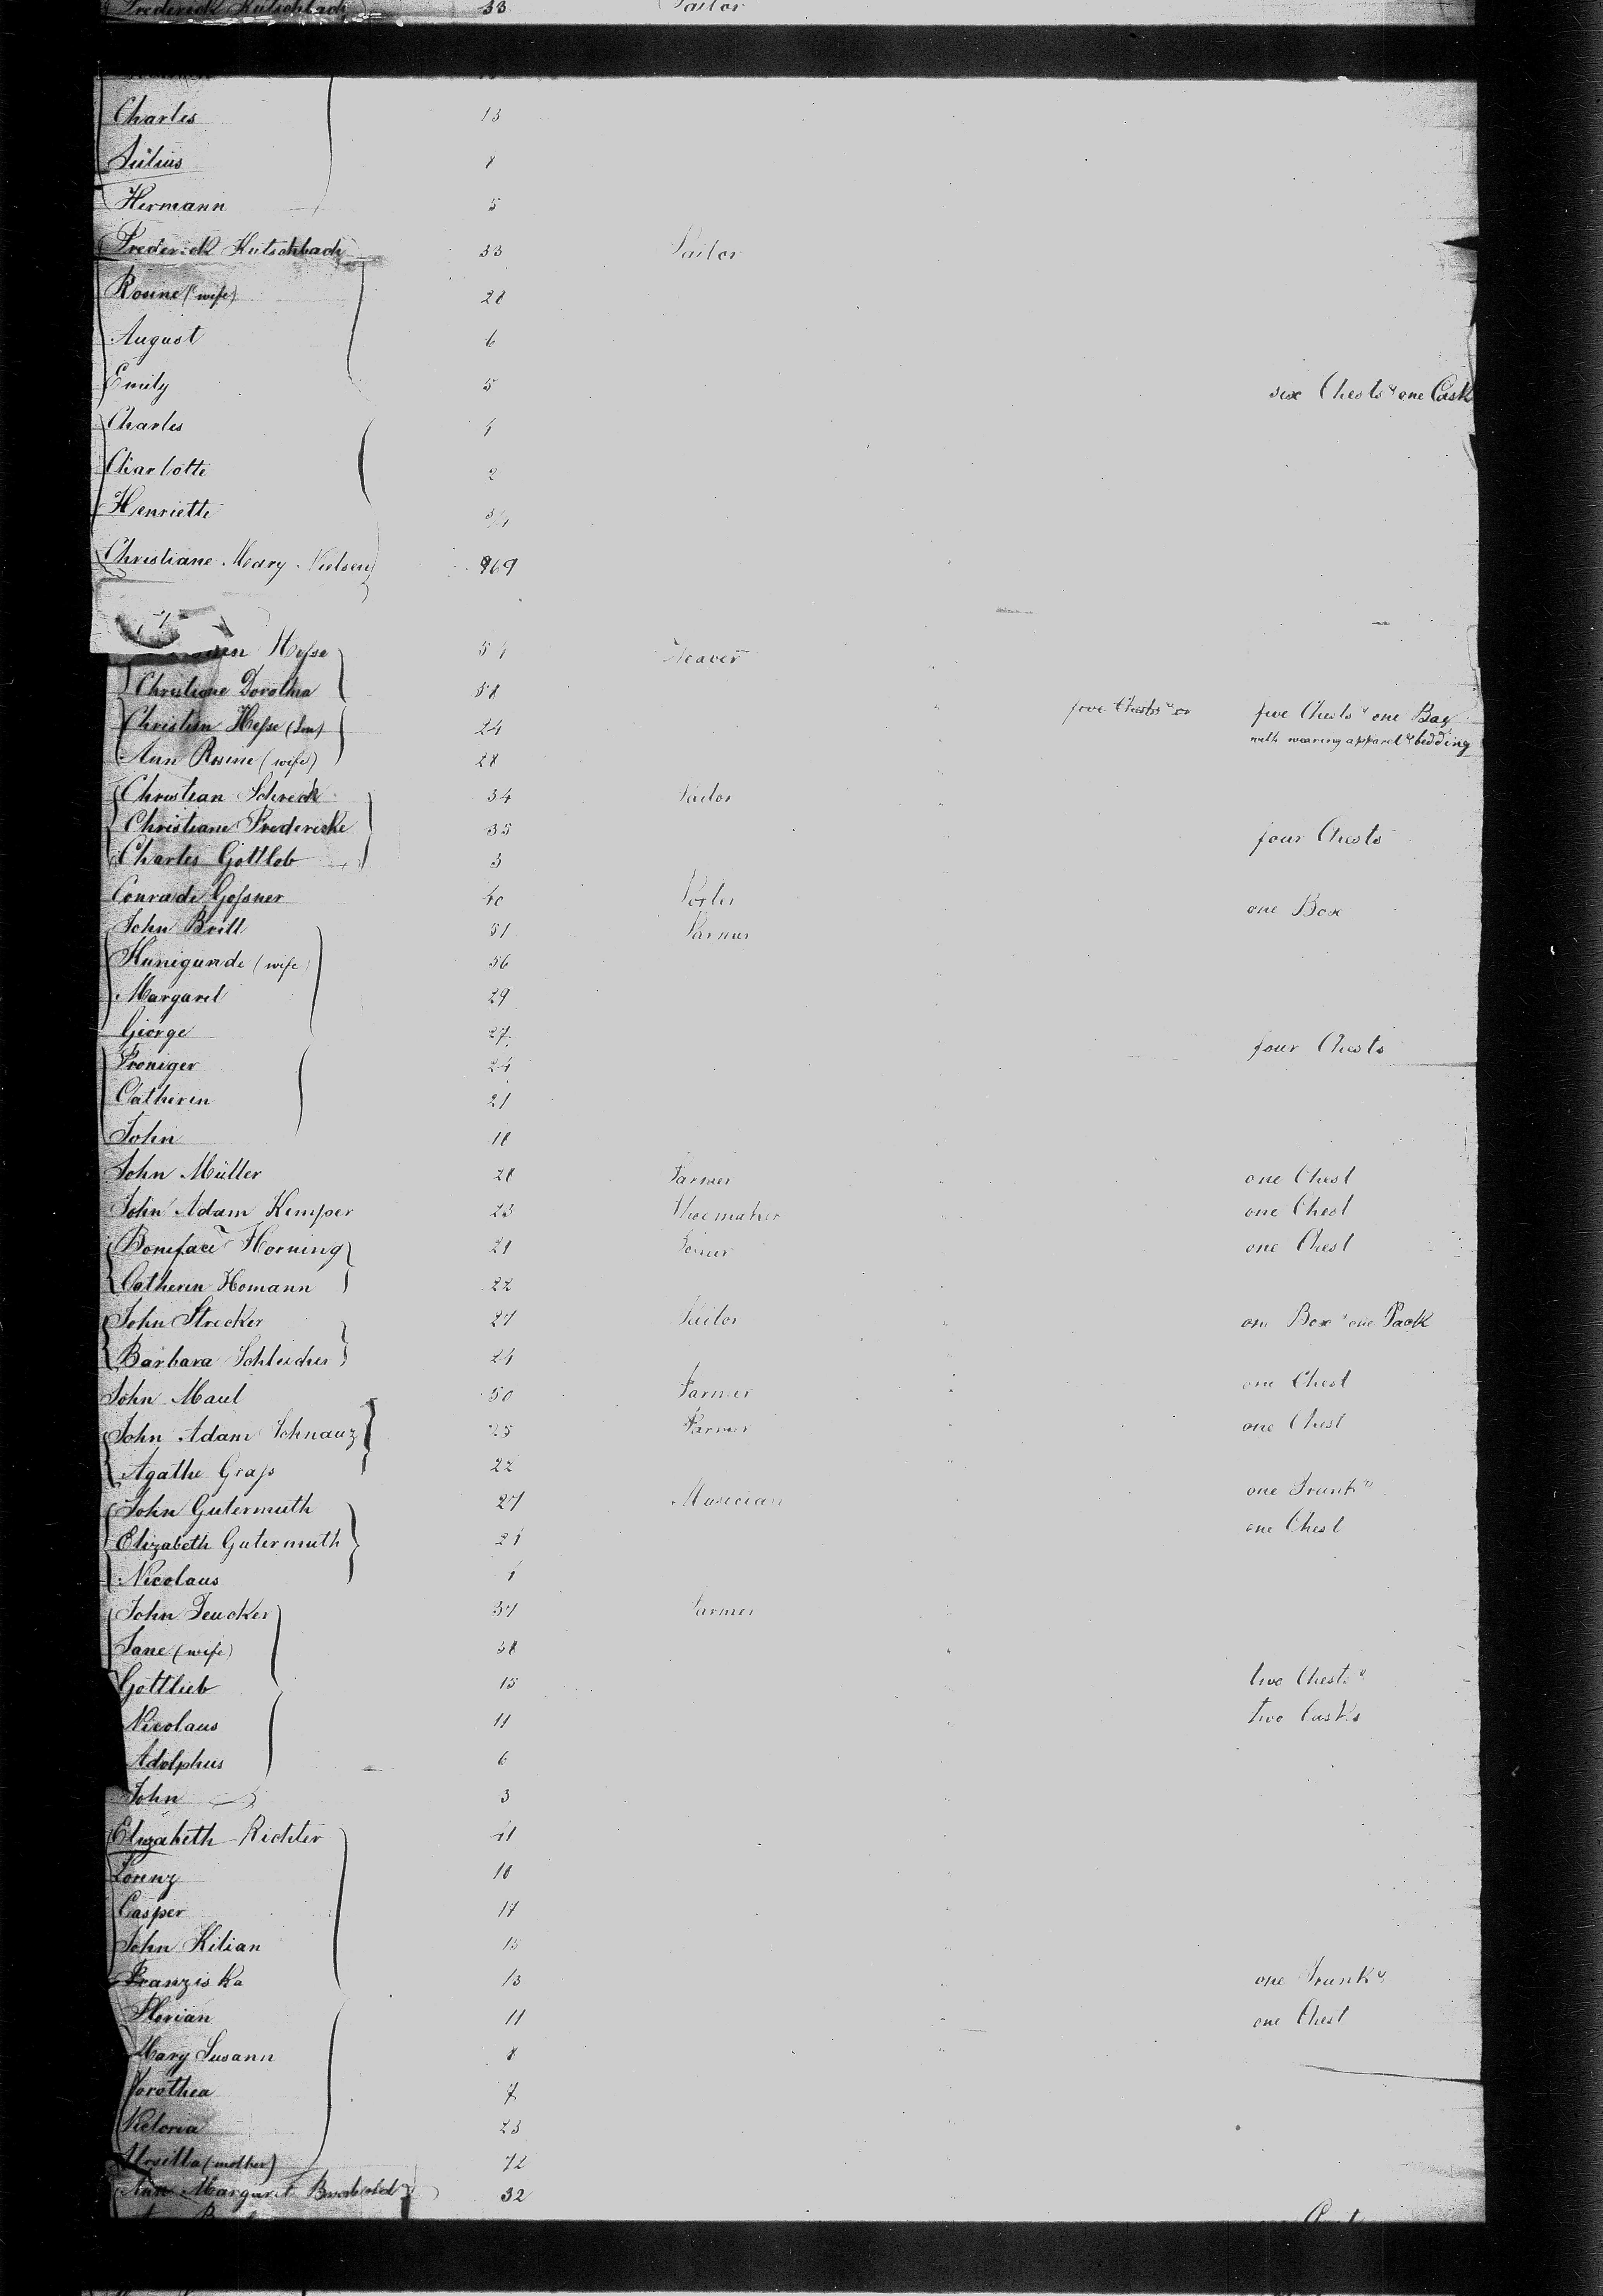 Frederick Kutschbach 33 Tailor
Charles 13
Julius 8
Hermann 5
Frederick Kutschbach 33 Tailor
Rosine (wife) 28
August 6
Emily 5 six Chests & one Cask
Charles 4
Charlotte 2
Henriette 3/4
Christiane Mary Nielsen 69
Hesse 54 Weaver
Christiane Dorothea 58
Christian Hesse (Son) 24 five Chests & one Bag
with wearing apparel & bedding
Ann Rosine (wife) 28
Christian Schreck 34 Tailor
Christiane Frederike 35 four Chests
Charles Gottlob 3
Conrade Gossner 40 one Box
John Brill 51 Farmer
Kunigunde (wife) 56
Margaret 29
George 27 four Chests
Froniger 24
Catherin 21
John 18
John Müller 28 Farmer one Chest
John Adam Kemper 23 Shoemaker one Chest
Boniface Horning 21 Joiner one Chest
Catherin Homann 22
John Strecker 27 Tailor one Box & one Pack
Barbara Schleicher 24
John Maul 50 Farmer one Chest
John Adam Schnauz 25 Farmer one Chest
Agathe Grass 22
John Gutermuth 27 Musician one Trunk &
Elizabeth Gutermuth 21 one Chest
Nicolaus 1
John Zeucker 37 Farmer
Jane (wife) 38
Gottlieb 15 two Chests &
Nicolaus 11 two Casks
Adolphus 6
John 3
Elizabeth Richter 41
Lorenz 18
Casper 17
John Kilian 15
Franziska 13 one Trunk &
Florian 11 one Chest
Mary Susann 8
Dorothea 7
Victoria 23
Ursilla (mother) 72
Ann Margaret 32